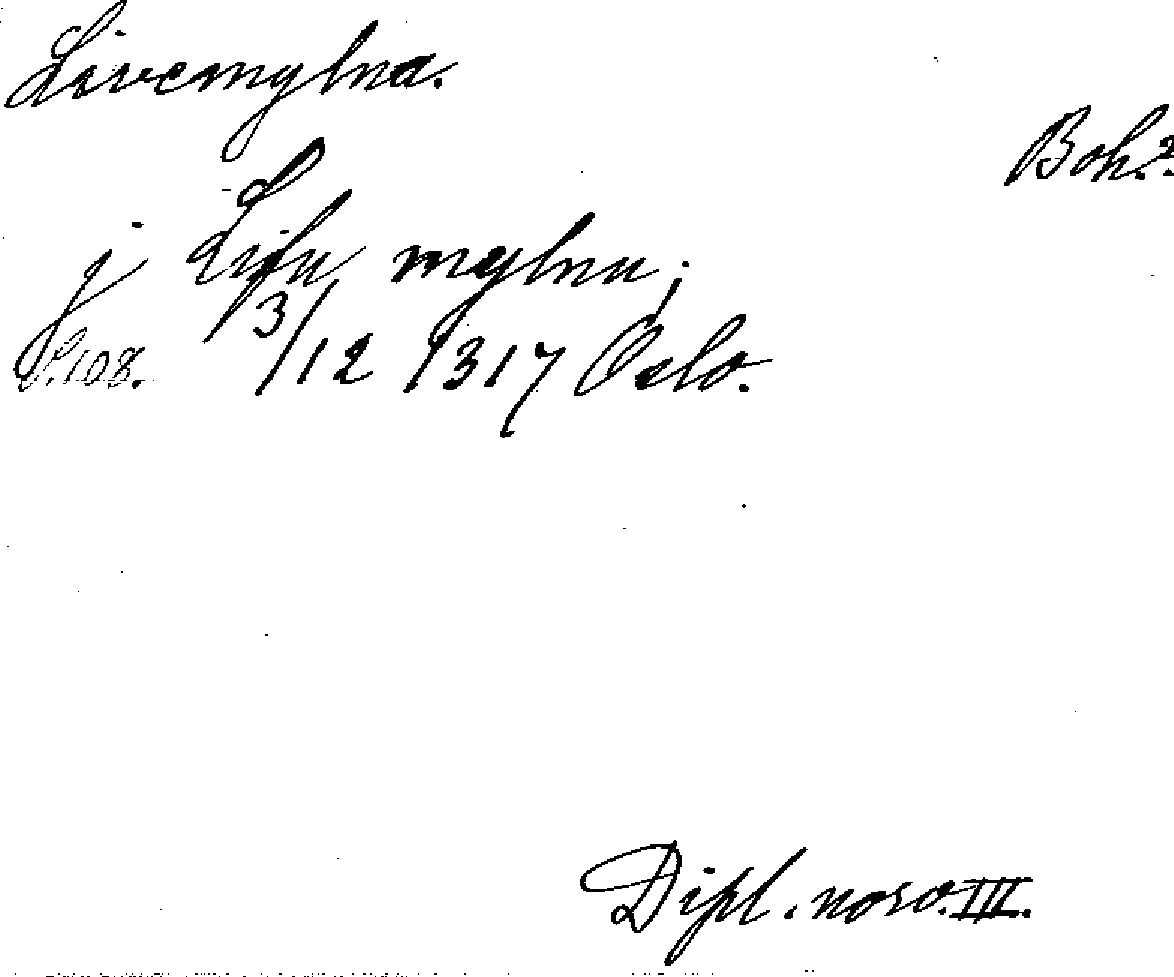 Livemylna.
Boh.?
j Lifu mylnu;
S. 108. 13/12 1317 Oslo.
Dipl. norv. III.